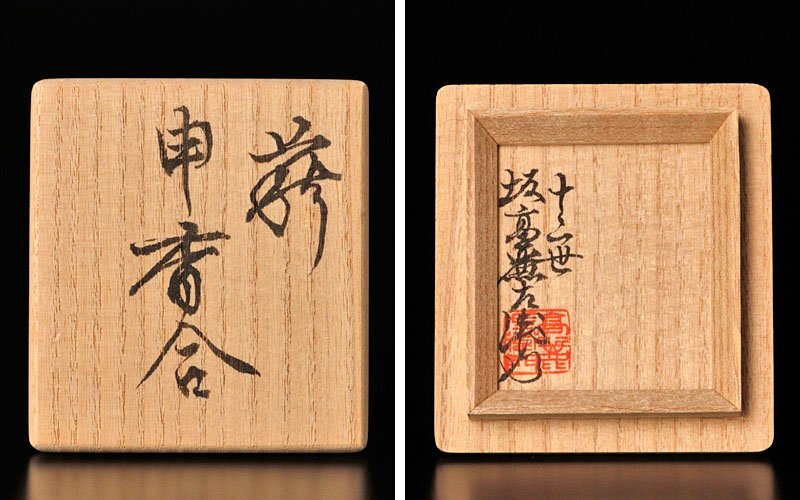 萩
申香合
十二世
坂高麗左衛門